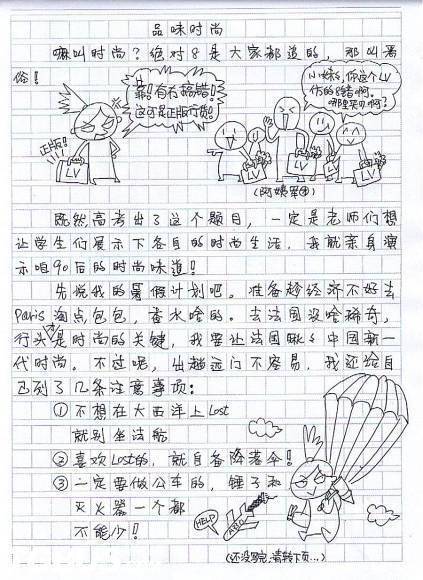 品味时尚
嘛叫时尚？绝对8是大家都道的，那叫濁
俗！
靠！有冇搞错！
这可是正版行货！
正版！
LV
小妹，你这个LV
仿的8错啊。
哪里买D啊？
LV
LV
LV
(阿姨军团)
既然高考出了这个题目，一定是老师们想
让学生们展示下各自的时尚生活，我就亲身演
示咱90后的时尚味道！
先说我的暑假计划吧。准备趁经济不好去
Paris淘点包包，香水啥的。去法国没啥稀奇，
行头才是时尚的关键，我要让法国瞅瞅中国新一
代时尚。不过呢，出趟远门不容易，我还给自
己列了几条注意事项：
①不想在大西洋上Lost
就别坐法航
②喜欢Lost的，就自备降落伞！
③一定要做公车的，锤子和
灭火器一个都
不能少！
HELP
(还没完，请转下页...)